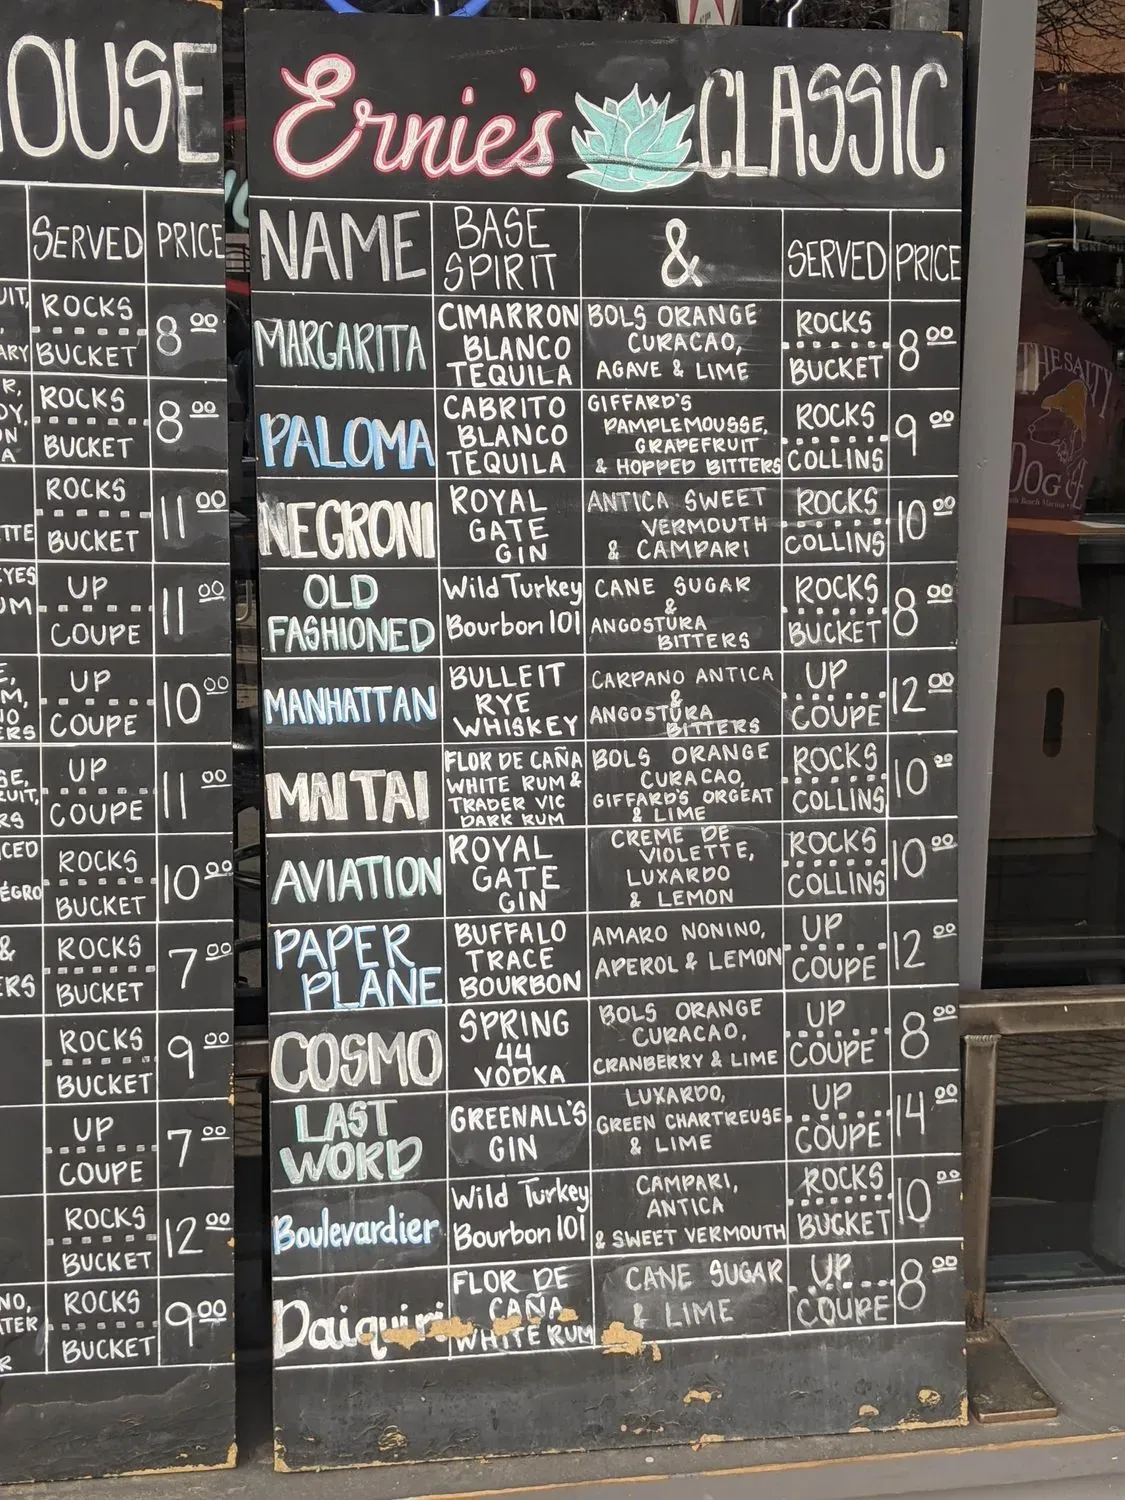 OUSE
SERVED PRICE
UIT, ROCKS 8 00
ARY BUCKET
R, ROCKS 8 00
DY, BUCKET
ON
A
ROCKS 11 00
TTE BUCKET
EYES UP 11 00
UM COUPE
E, UP 10 00
M, COUPE
NO
ERS
SE, UP 11 00
RUIT, COUPE
RS
ICED ROCKS 10 00
NÉGRO BUCKET
& ROCKS 7 00
ERS BUCKET
ROCKS 9 00
BUCKET
UP 7 00
COUPE
ROCKS 12 00
BUCKET
NO, ROCKS 9 00
TER BUCKET
R
Ernie's CLASSIC
NAME BASE SPIRIT & SERVED PRICE
MARGARITA
CIMARRON
BLANCO
TEQUILA
BOLS ORANGE
CURACAO,
AGAVE & LIME
ROCKS
BUCKET
8 00
PALOMA
CABRITO
BLANCO
TEQUILA
GIFFARD'S
PAMPLEMOUSSE,
GRAPEFRUIT
& HOPPED BITTERS
ROCKS
COLLINS
9 00
NEGRONI
ROYAL
GATE
GIN
ANTICA SWEET
VERMOUTH
& CAMPARI
ROCKS
COLLINS
10 00
OLD
FASHIONED
Wild Turkey
Bourbon 101
CANE SUGAR
&
ANGOSTURA
BITTERS
ROCKS
BUCKET
8 00
MANHATTAN
BULLEIT
RYE
WHISKEY
CARPANO ANTICA
&
ANGOSTURA
BITTERS
UP
COUPE
12 00
MAITAI
FLOR DE CAÑA
WHITE RUM &
TRADER VIC
DARK RUM
BOLS ORANGE
CURACAO,
GIFFARD'S ORGEAT
& LIME
ROCKS
COLLINS
10 00
AVIATION
ROYAL
GATE
GIN
CREME DE
VIOLETTE,
LUXARDO
& LEMON
ROCKS
COLLINS
10 00
PAPER
PLANE
BUFFALO
TRACE
BOURBON
AMARO NONINO,
APEROL & LEMON
UP
COUPE
12 00
COSMO
SPRING
44
VODKA
BOLS ORANGE
CURACAO,
CRANBERRY & LIME
UP
COUPE
8 00
LAST
WORD
GREENALL'S
GIN
LUXARDO,
GREEN CHARTREUSE
& LIME
UP
COUPE
14 00
Boulevardier
Wild Turkey
Bourbon 101
CAMPARI,
ANTICA
& SWEET VERMOUTH
ROCKS
BUCKET
10 00
Daiquiri
FLOR DE
CAÑA
WHITE RUM
CANE SUGAR
& LIME
UP
COUPE
8 00
THE SALTY
DOG